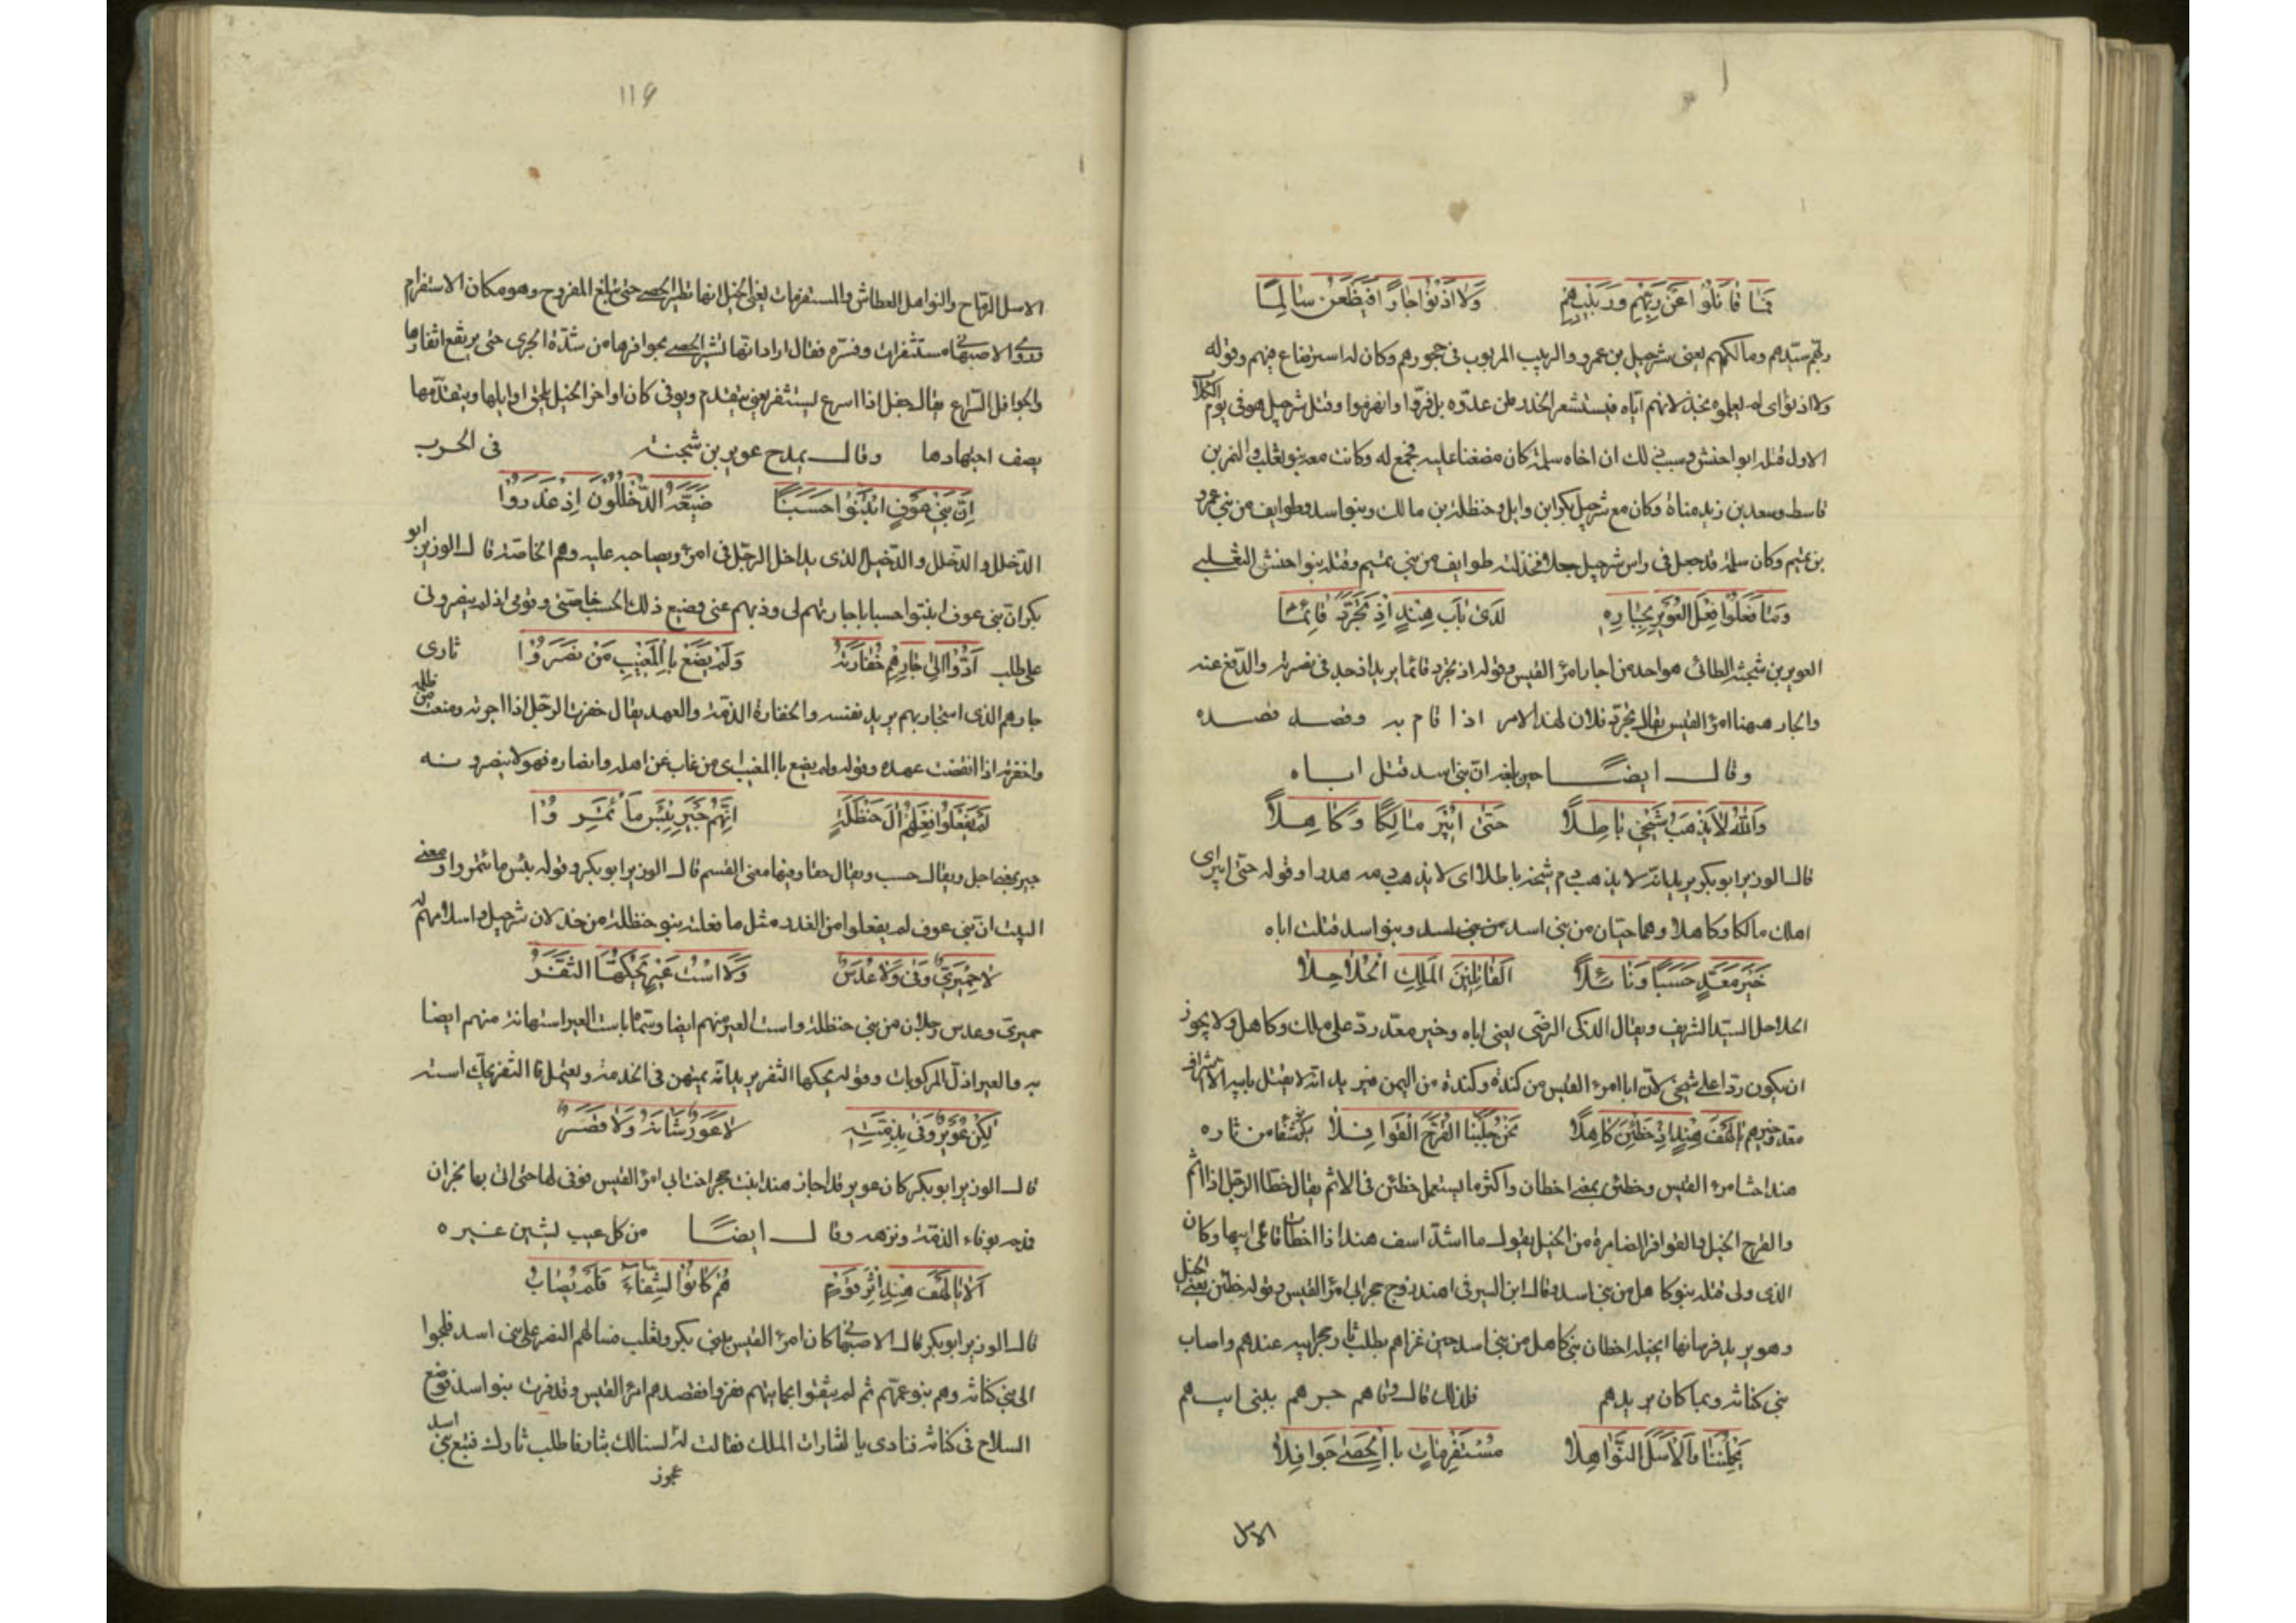 فما قاتلوا عن ربهم وربيبهم ولا اذنوا جارا فيظعن سالما
ربهم سيدهم ومالكهم يعنى شرحبيل بن عمرو والربيب المربوب فى حجورهم وكان له استرضاع فيهم وقوله
ولا اذنوا اى لم يعلموه بخذلانهم اياه فيستشعر الحذر من عدوه بل فروا وانهزموا وقتل شرحبيل هو فى يوم الكلاب
الاول قتله ابو احنش وسبب ذلك ان اخاه سلمة كان مضغنا عليه فجمع له وكانت معه بنو تغلب والنمر بن
قاسط وسعد بن زيد مناة وكان مع شرحبيل بكر ابن وايل وحنظلة بن مالك وبنو اسد وطوايف من بنى عمرو
بن تميم وكان سلمة قد جعل فى راس شرحبيل جعلا فخذلته طوايف من بنى تميم وقتله بنو احنش التغلبى
وما فعلوا فعل العوير بجاره لدى باب هند اذ تجرد قائما
العوير بن شجنة الطائى هو احد من اجار امرؤ القيس وقوله اذ تجرد قائما يريد اذ جد فى نصرته والدفع عنه
والجار ههنا امرؤ القيس يقال تجرد فلان لهذا الامر اذا قام به وقصد قصده
وقال ايضا حين بلغه ان بنى اسد قتل اباه
والله لا يذهب شيخى باطلا حتى ابير مالكا وكاهلا
قال الوزير ابو بكر يريد بانه لا يذهب دم شيخه باطلا اى لا يذهب دمه هدرا وقوله حتى ابير اى
اهلك مالكا وكاهلا وهما حيان من بنى اسد من بنى اسد وبنو اسد قتلت اباه
خير معد حسبا ونائلا القاتلين الملك الحلاحلا
الحلاحل السيد الشريف ويقال الذكى الرضى يعنى اباه وخير معد رد على مالك وكاهل ولا يجوز
ان يكون ردا على شيخى لان ابا امرء القيس من كندة وكندة من اليمن فيريد انه لا يقتل بابيه الا اشراف
معد وخيرهم يا لهف هند اذ خطئن كاهلا نحن جلبنا القرح القوافلا
هند اخت امرء القيس وخطئن بمعنى اخطان واكثر ما يستعمل خطئن فى الاثم يقال خطا الرجل اذا اثم
والقرح الخيل والقوافل الضامرة من الخيل يقول ما اشد اسف هند اذا اخطات قاتلى ابيها وكان
الذى ولى قتله بنو كاهل من بنى اسد وقال ابن السيرفى هند زوج حجر ابى امرؤ القيس وقوله خطئن يعنى الخيل
وهو يريد فرسانها اى خيله اخطان بنى كاهل من بنى اسد حين غزاهم يطلب ثار حجر ابيه عندهم واصاب
بنى كنانة وما كان يريدهم فلذلك قال وقاهم جدهم ببنى ابيهم
يحملننا والاسل النواهلا مستفرمات بالحصى جوافلا
الاسل
١١٩
الاسل الرماح والنواهل العطاش والمستفرمات يعنى الخيل انها تطير الحصى حتى تبلغ الفروج وهو مكان الاستفرام
وروى الاصبهانى مستثفرات وفسره فقال اراد انها تثير الحصى بحوافرها من شدة الجرى حتى يرتفع اثفارها
والجوافل السراع يقال جفل اذا اسرع ليستثفر يعنى يتقدم ويوفى كان اواخر الخيل يلحق اوايلها ويتقدمها
يصف اجتهادها وقال يمدح عوير بن شجنة فى الحرب
ان بنى عوف ابتنوا حسبا ضيعه الدخللون اذ غدروا
الدخلل والدخلل والدخيل الذى يداخل الرجل فى امره ويصاحبه عليه وهم الخاصة قال الوزير ابو
بكر ان بنى عوف ابتنوا حسبا باجارتهم لى وذبهم عنى وضيع ذلك الحسب خاصتى وقومى اذ لم ينصرونى
على طلب ادوا الى جارهم خفارته ولم يضع بالمغيب من نصروا ثارى
جارهم الذى استجار بهم يريد نفسه والخفارة الذمة والعهد يقال خفرت الرجل اذا اجرته ومنعت من ظلمه
واخفرته اذا انقضت عهده وقوله ولم يضع بالمغيب اى من غاب عن اهله وانصاره فهولا ينصرونه
لم يفعلوا فعل ال حنظلة انهم جير بئس ما ئتمروا
جير بمعنى اجل ويقال حسب ويقال حقا وفيها معنى القسم قال الوزير ابو بكر وقوله بئس ما ئتمروا ومعنى
البيت ان بنى عوف لم يفعلوا من الغدر مثل ما فعلته بنو حنظلة من خذلان شرحبيل واسلامهم له
لا حميرى وفى ولا عدس ولا است عير يحكها الثفر
حميرى وعدس رجلان من بنى حنظلة واست العير منهم ايضا وسماه باست العير استهانة منهم ايضا
به والعير اذل المركوبات وقوله يحكها الثفر يريد بانه يمتهن فى الخدمة ويعتمل فا الثفر يحك استه
لكن عوير وفى بذمته لا عور شانه ولا قصر
قال الوزير ابو بكر كان عوير قد اجاز هند ابنت حجر اخت ابى امرؤ القيس فوفى لها حتى اتى بها نجران
فدحه بوفاء الذمة ونزهه وقال ايضا من كل عيب يشين غيره
الا يا لهف هند اثر قوم هم كانوا الشفاء فلم يصابوا
قال الوزير ابو بكر قال الاصبهانى كان امرؤ القيس ببنى بكر وتغلب فسالهم النصر على بنى اسد فلجوا
الى بنى كنانة وهم بنو عمهم ثم لم يثقوا بحمايتهم ففروا فقصدهم امرؤ القيس وقد فرت بنو اسد فوضع
السلاح فى كنانة فنادى يا لثارات الملك فقالت له لسنا لك بثار فاطلب ثارك فتبع بنى اسد
عجوز